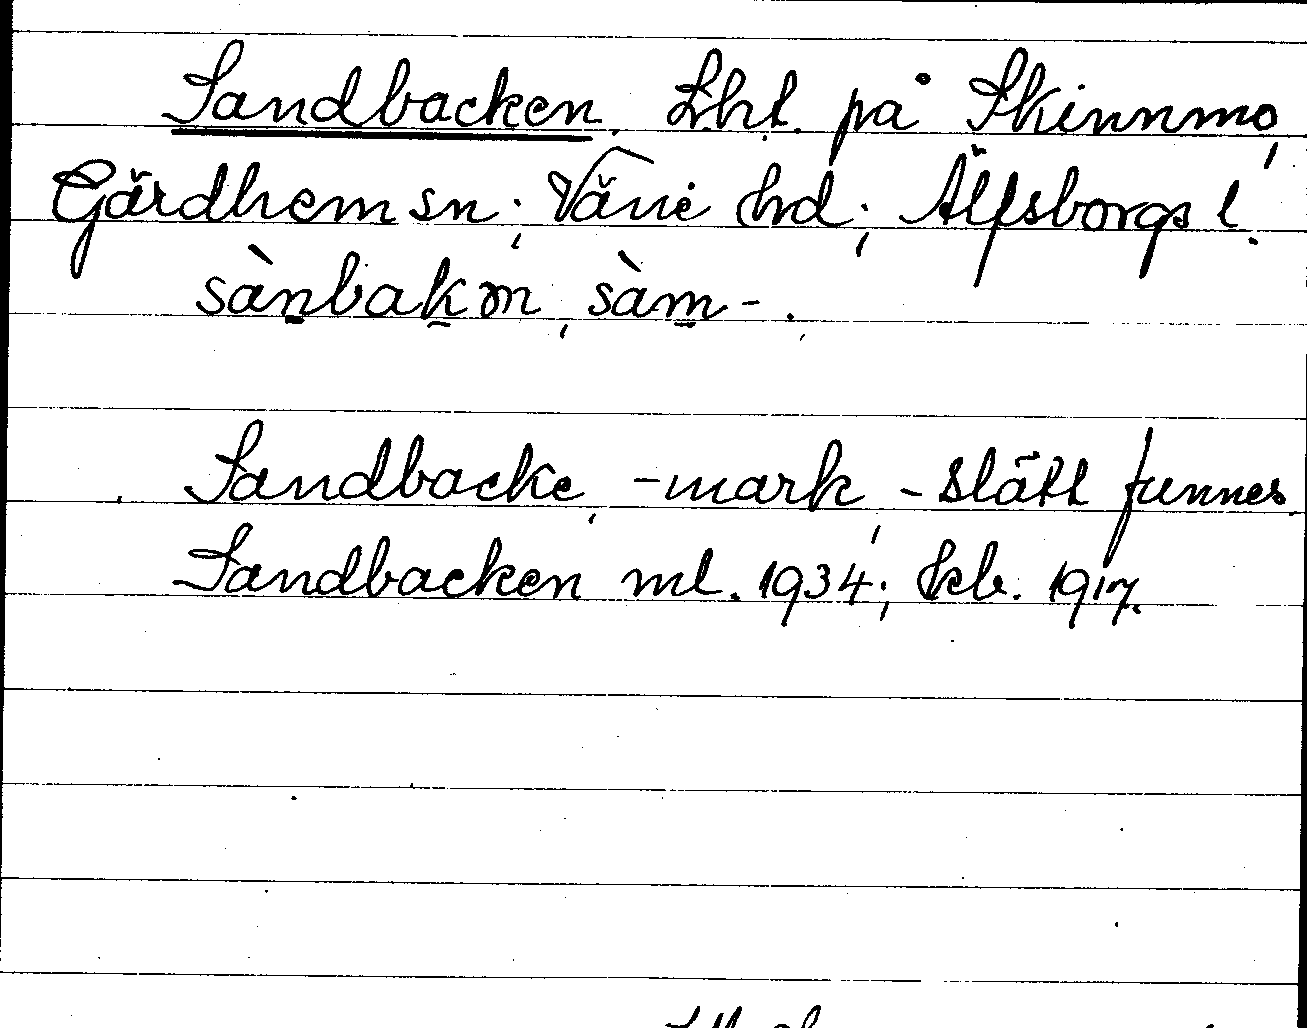 Sandbacken. Lht. på Skinnmo,
Gärdhem sn; Väne hd; Älfsborgs l.
sànbakən, sàm-.
Sandbacke, -mark, -slätt funnes.
Sandbacken ml. 1934; kb. 1917.